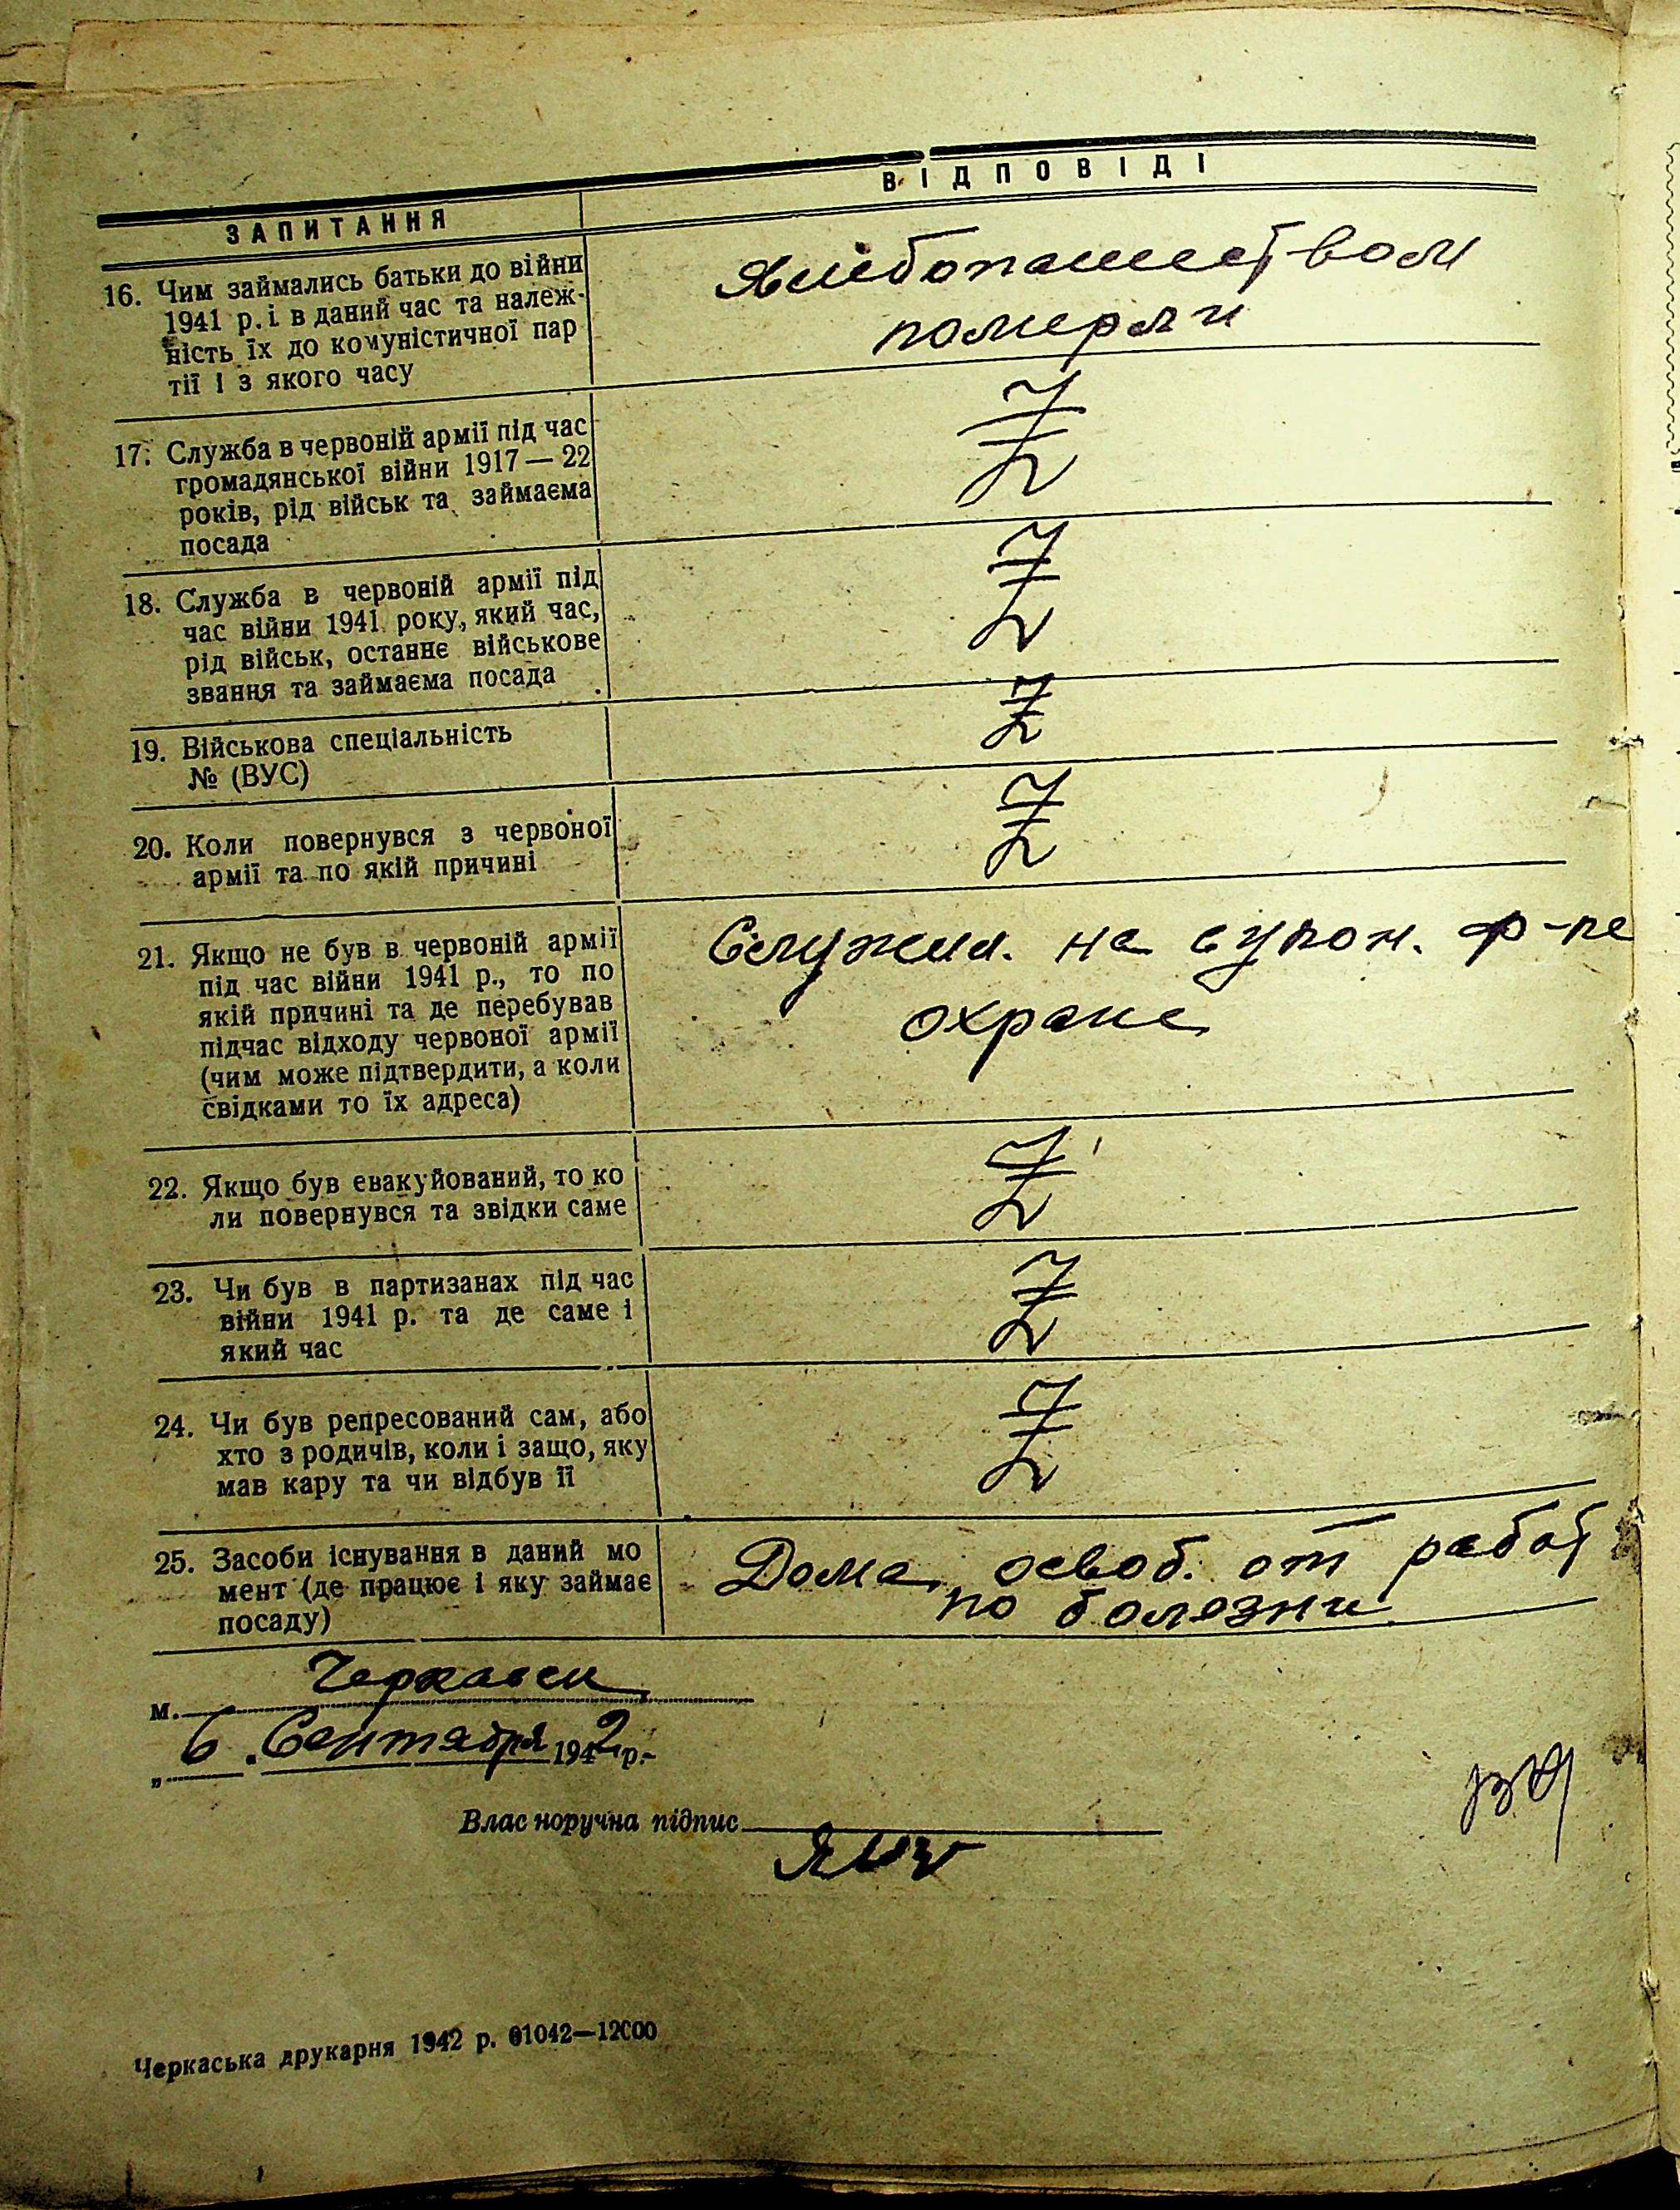 ЗАПИТАННЯ
ВІДПОВІДІ
16. Чим займались батьки до війни
1941 р. і в даний час та належ-
ність їх до комуністичної пар
тії і з якого часу
Хлебопашеством
померли
17. Служба в червоній армії під час
громадянської війни 1917 — 22
років, рід військ та займаєма
посада
Z
18. Служба в червоній армії під
час війни 1941 року, який час,
рід військ, останнє військове
звання та займаєма посада
Z
19. Військова спеціальність
№ (ВУС)
Z
20. Коли повернувся з червоної
армії та по якій причині
Z
21. Якщо не був в червоній армії
під час війни 1941 р., то по
якій причині та де перебував
підчас відходу червоної армії
(чим може підтвердити, а коли
свідками то їх адреса)
Служил. на ф-ке
охране
22. Якщо був евакуйований, то ко
ли повернувся та звідки саме
Z
23. Чи був в партизанах під час
війни 1941 р. та де саме і
який час
Z
24. Чи був репресований сам, або
хто з родичів, коли і защо, яку
мав кару та чи відбув її
Z
25. Засоби існування в даний мо
мент (де працює і яку займає
посаду)
Дома, освоб. от работ
по болезни
м. Черкассы
„ 6 . Сентября 1942 р.-
Влас норучна підпис
Черкаська друкарня 1942 р. 01042—12000